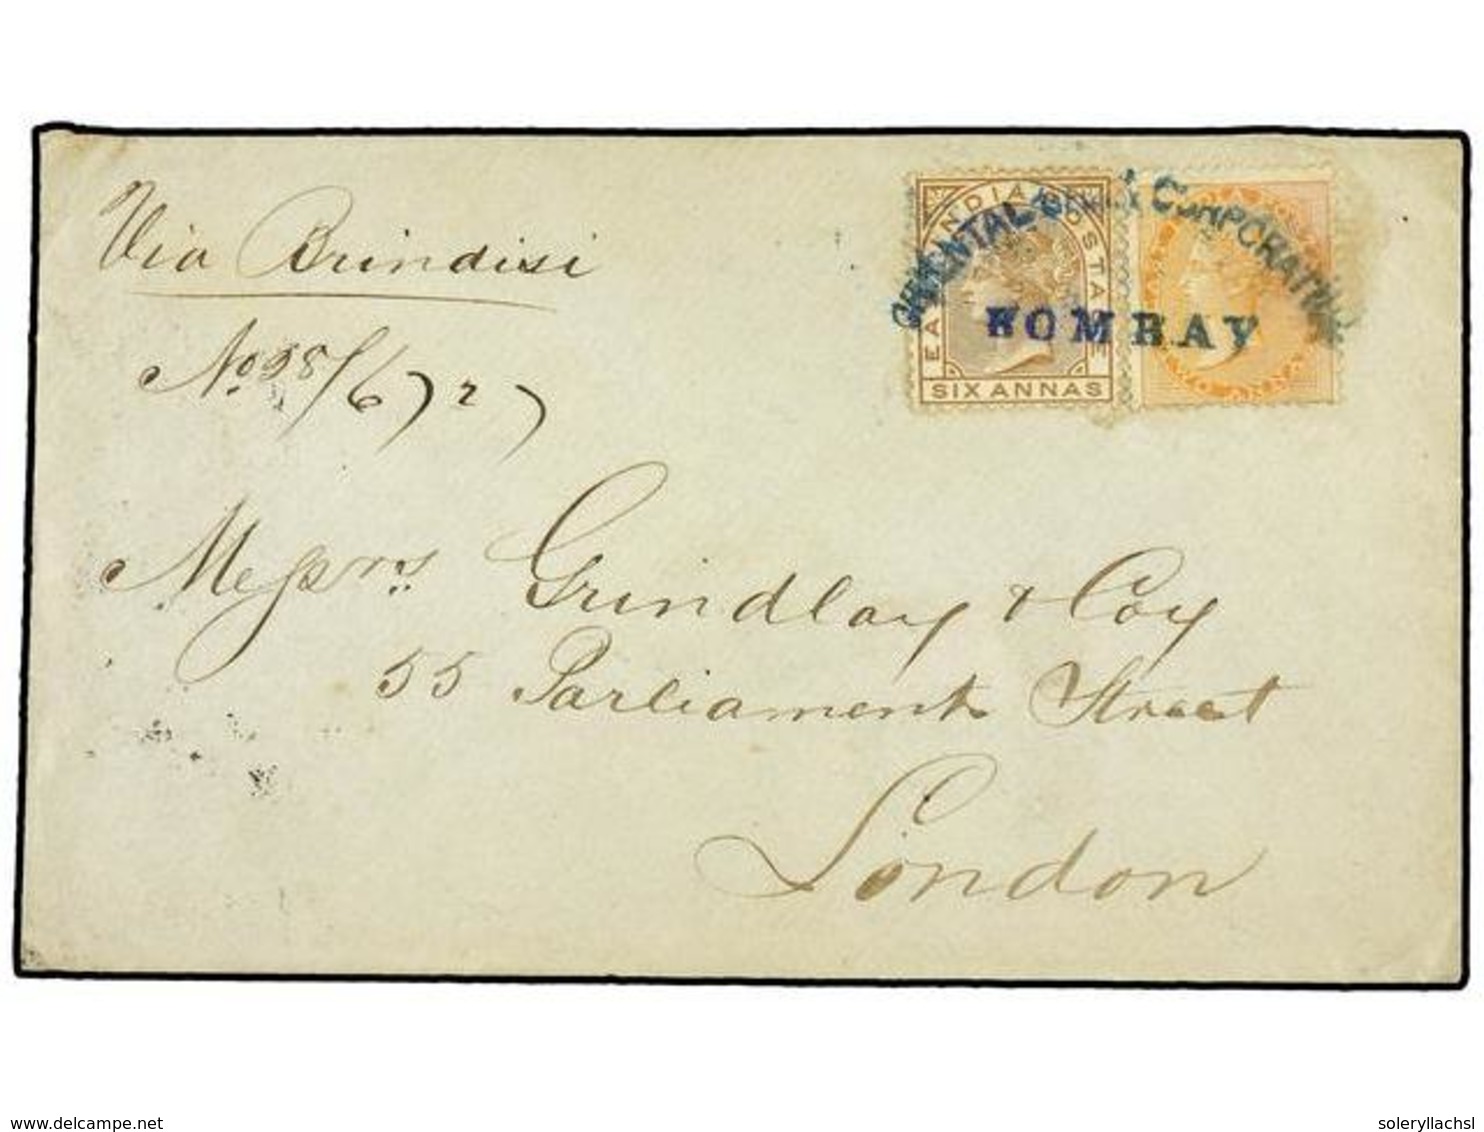 Via Brindisi
ORIENTAL BANK CORPORATION
BOMBAY
EAST INDIA POSTAGE
SIX ANNAS
TWO ANNAS
Messrs Grindlay & Coy
55 Parliament Street
London
www.delcampe.net
soleryllachsl